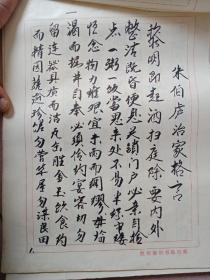 朱伯庐治家格言
黎明即起洒扫庭除要内外
整洁既昏便息关锁门户必亲自检
点一粥一饭当思来处不易半丝半缕
恒念物力维艰宜未雨而绸缪毋临
渴而掘井自奉必须俭约宴客切勿
留连器具质而洁瓦缶胜金玉饮食约
而精园蔬逾珍馐勿营华屋勿谋良田